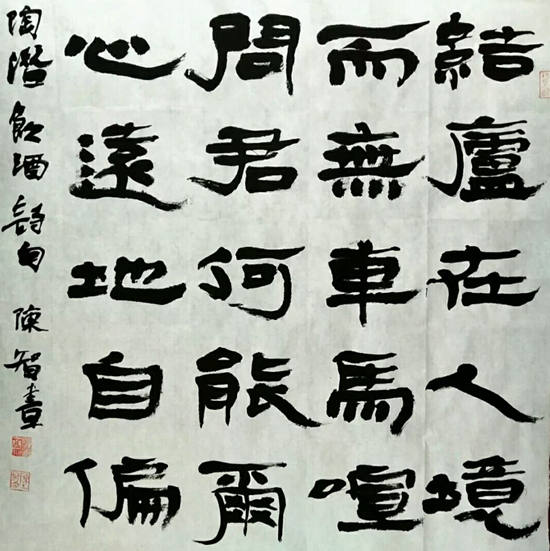 結廬在人境
而無車馬喧
問君何能爾
心遠地自偏
陶潛飲酒詩句 陳智書